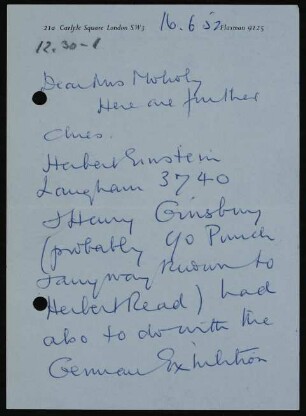 21a Carlyle Square London SW3 16.6.52 Flaxman 9125
12.30-1
Dear Mrs Moholy
Here are further
clues.
Herbert Einstein
Langham 3740
& Harry Ginsbury
(probably c/o Punch
& anyway known to
Herbert Read) had
also to do with the
German Exhibition